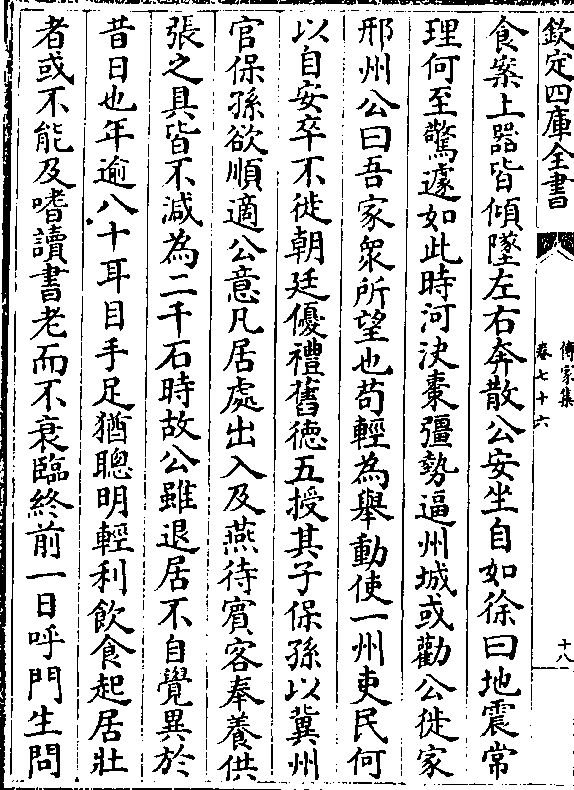 欽定四庫全書
傳家集
卷七十六
十八
食案上器皆傾墜左右奔散公安坐自如徐曰地震常
理何至驚遽如此時河決棗彊勢逼州城或勸公徙家
邢州公曰吾家衆所望也苟輕為舉動使一州吏民何
以自安卒不徙朝廷優禮舊徳五授其子保孫以冀州
官保孫欲順適公意凡居處出入及燕待賓客奉養供
張之具皆不減為二千石時故公雖退居不自覺異於
昔日也年逾八十耳目手足猶聰明輕利飲食起居壯
者或不能及嗜讀書老而不衰臨終前一日呼門生問